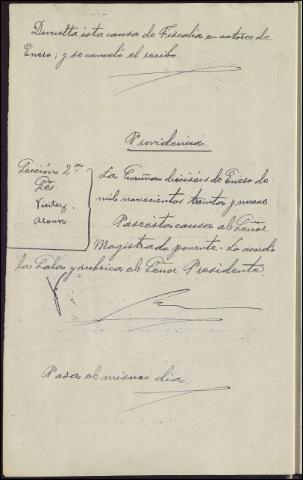 Devuelta esta causa de Fiscalia en catorce de
Enero; y se canceló el recibo
Providencia.
Sección 2ª
Sres.
La Coruña dieciséis de Enero de
mil novecientos treinta y nueve
Pase esta causa al Señor
Magistrado ponente. Lo acordó
la Sala y rubrica el Señor Presidente
Pasa el mismo dia.